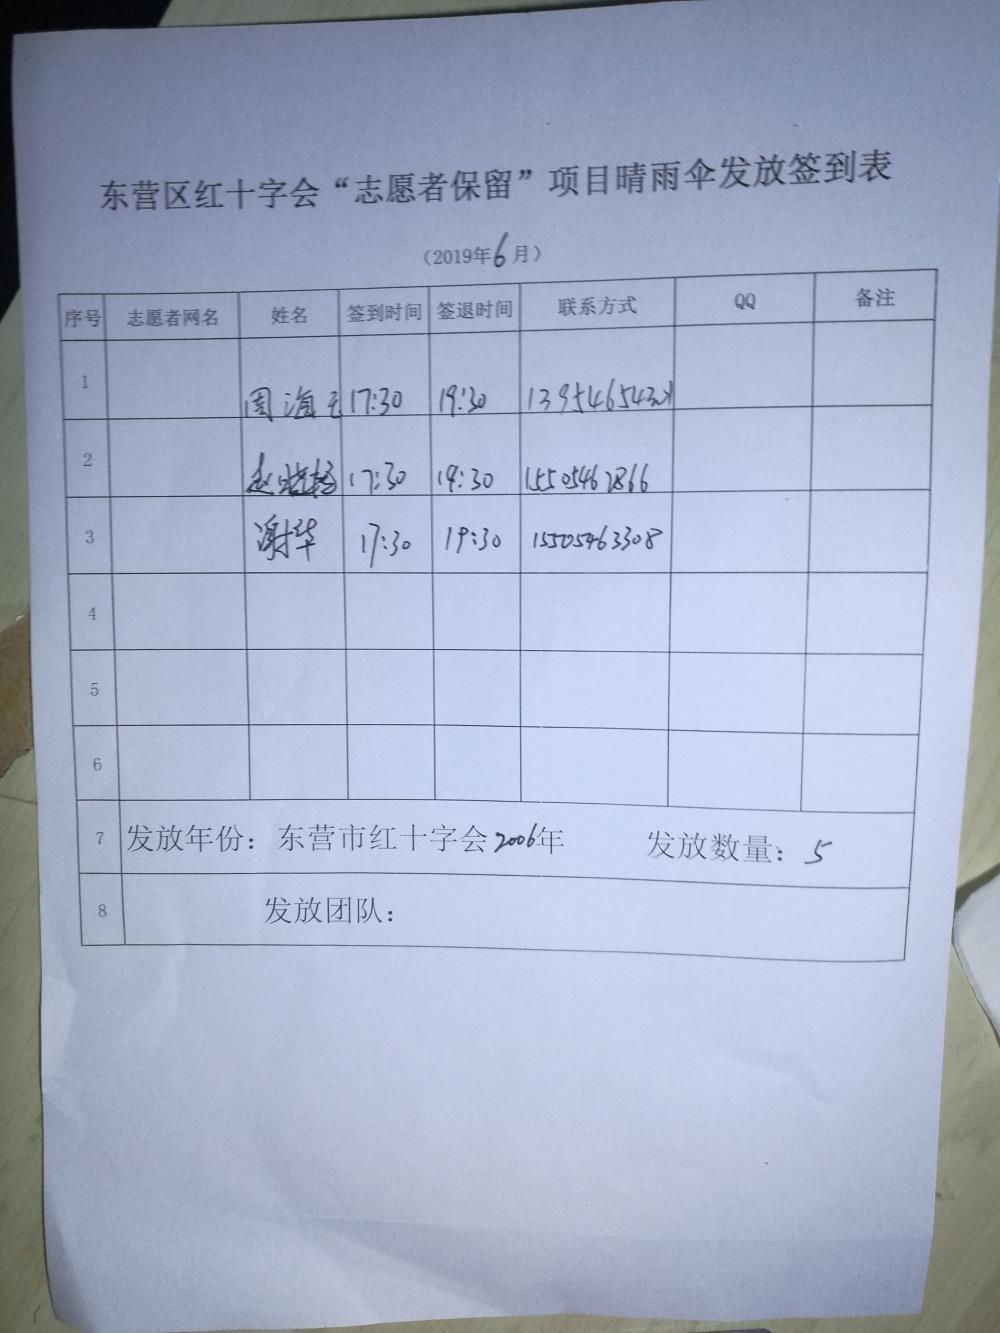 东营区红十字会“志愿者保留”项目晴雨伞发放签到表
（2019年6月）
序号 志愿者网名 姓名 签到时间 签退时间 联系方式 QQ 备注
1 周海 17:30 19:30 139546543
2 赵晓杨 17:30 19:30 15505462866
3 谢华 17:30 19:30 15505463308
4
5
6
7 发放年份：东营市红十字会2006年 发放数量：5
8 发放团队：